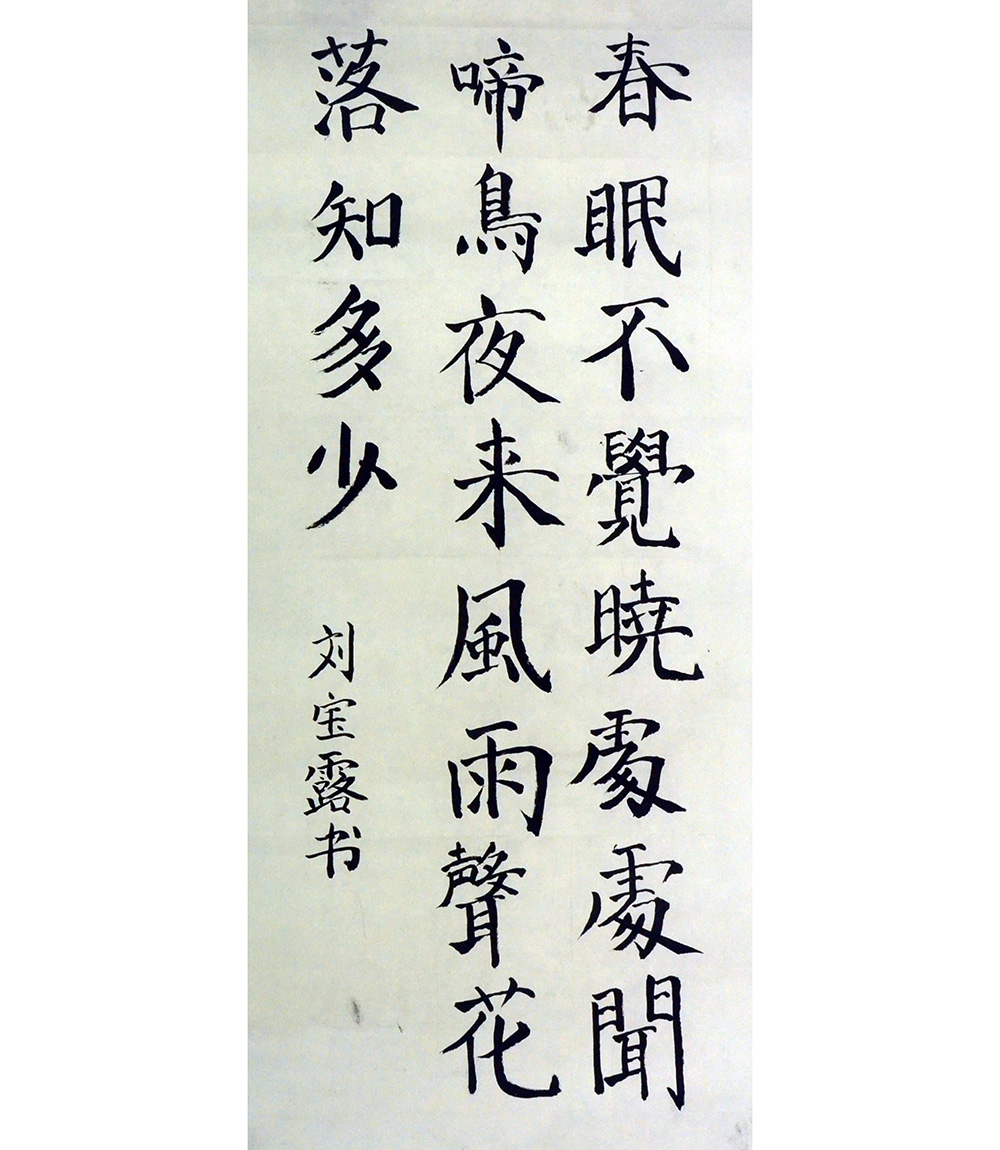 春眠不覺曉處處聞
啼鳥夜来風雨聲花
落知多少
刘宝露书